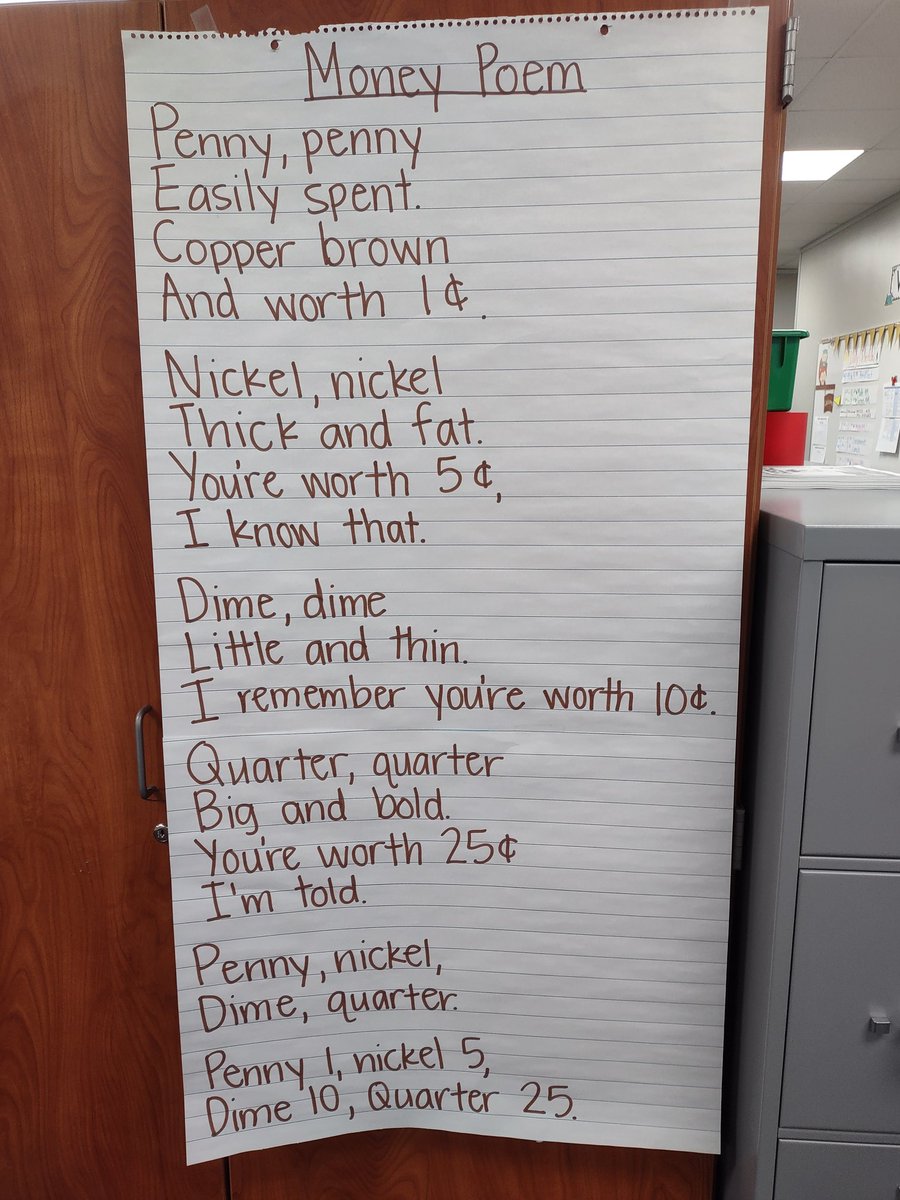 Money Poem
Penny, penny
Easily spent.
Copper brown
And worth 1¢.
Nickel, nickel
Thick and fat.
You're worth 5¢,
I know that.
Dime, dime
Little and thin.
I remember you're worth 10¢.
Quarter, quarter
Big and bold.
You're worth 25¢
I'm told.
Penny, nickel,
Dime, quarter.
Penny 1, nickel 5,
Dime 10, Quarter 25.